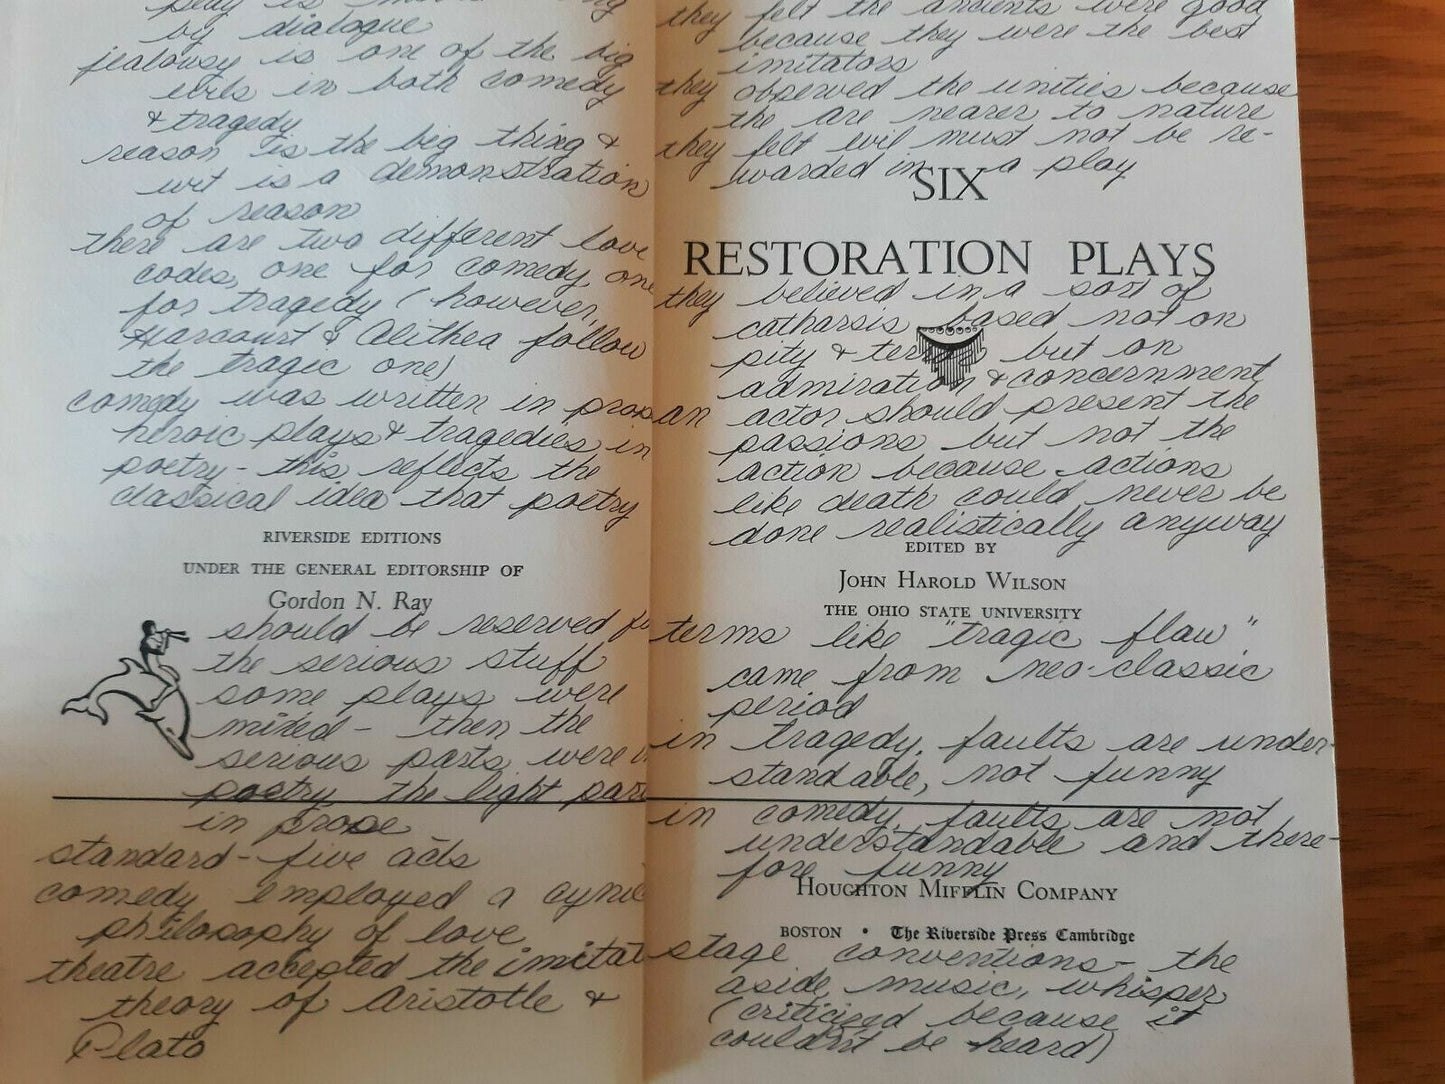 play is
by dialogue
jealousy is one of the big
evils in both comedy
& tragedy
reason is the big thing &
wit is a demonstration
of reason
there are two different love
codes, one for comedy, one
for tragedy (however,
Harcourt & Alithea follow
the tragic one)
comedy was written in prose
heroic plays & tragedies in
poetry - this reflects the
classical idea that poetry
RIVERSIDE EDITIONS
UNDER THE GENERAL EDITORSHIP OF
Gordon N. Ray
should be reserved
the serious stuff
some plays were
mixed - then the
serious parts were
poetry the light
in prose
standard - five acts
comedy employed a
philosophy of love
theatre accepted the
theory of Aristotle &
Plato
they felt the ancients were good
because they were the best
imitators
they observed the unities because
the are nearer to nature
they felt evil must not be re-
warded in a play
SIX
RESTORATION PLAYS
they believed in a sort of
catharsis based not on
pity & terror but on
admiration & concernment
an actor should present the
passions but not the
action because actions
like death could never be
done realistically anyway
EDITED BY
JOHN HAROLD WILSON
THE OHIO STATE UNIVERSITY
terms like "tragic flaw"
came from neo-classic
period
in tragedy, faults are under-
standable, not funny
in comedy, faults are not
understandable and there-
fore funny
HOUGHTON MIFFLIN COMPANY
BOSTON • The Riverside Press Cambridge
stage conventions - the
aside, music, whisper
(criticized because it
couldn't be heard)